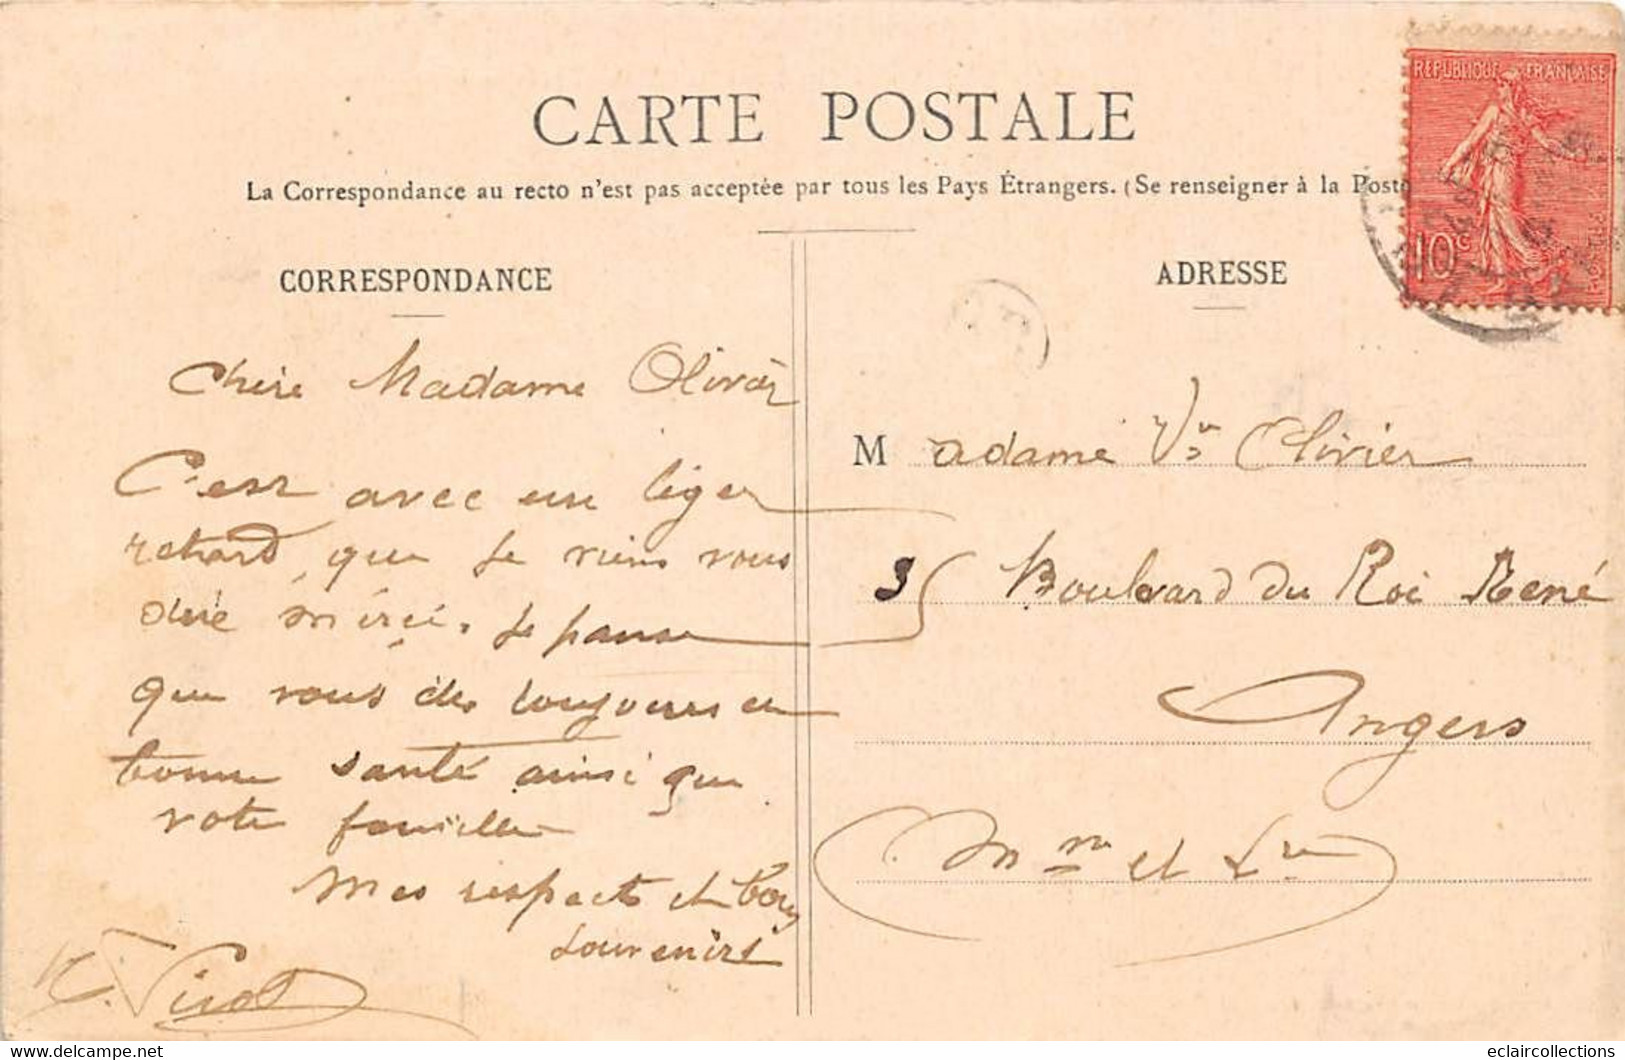 CARTE POSTALE
La Correspondance au recto n'est pas acceptée par tous les Pays Étrangers. (Se renseigner à la Poste
CORRESPONDANCE
Chère Madame Olivier
C'est avec un léger
retard, que je viens vous
dire merci. Je pense
que vous êtes toujours en
bonne santé ainsi que
votre famille
Mes respects et bons
souvenirs
ADRESSE
Madame Vve Olivier
Boulevard du Roi René
Angers
Mne et Lre
REPUBLIQUE FRANÇAISE
10c
eclaircollections